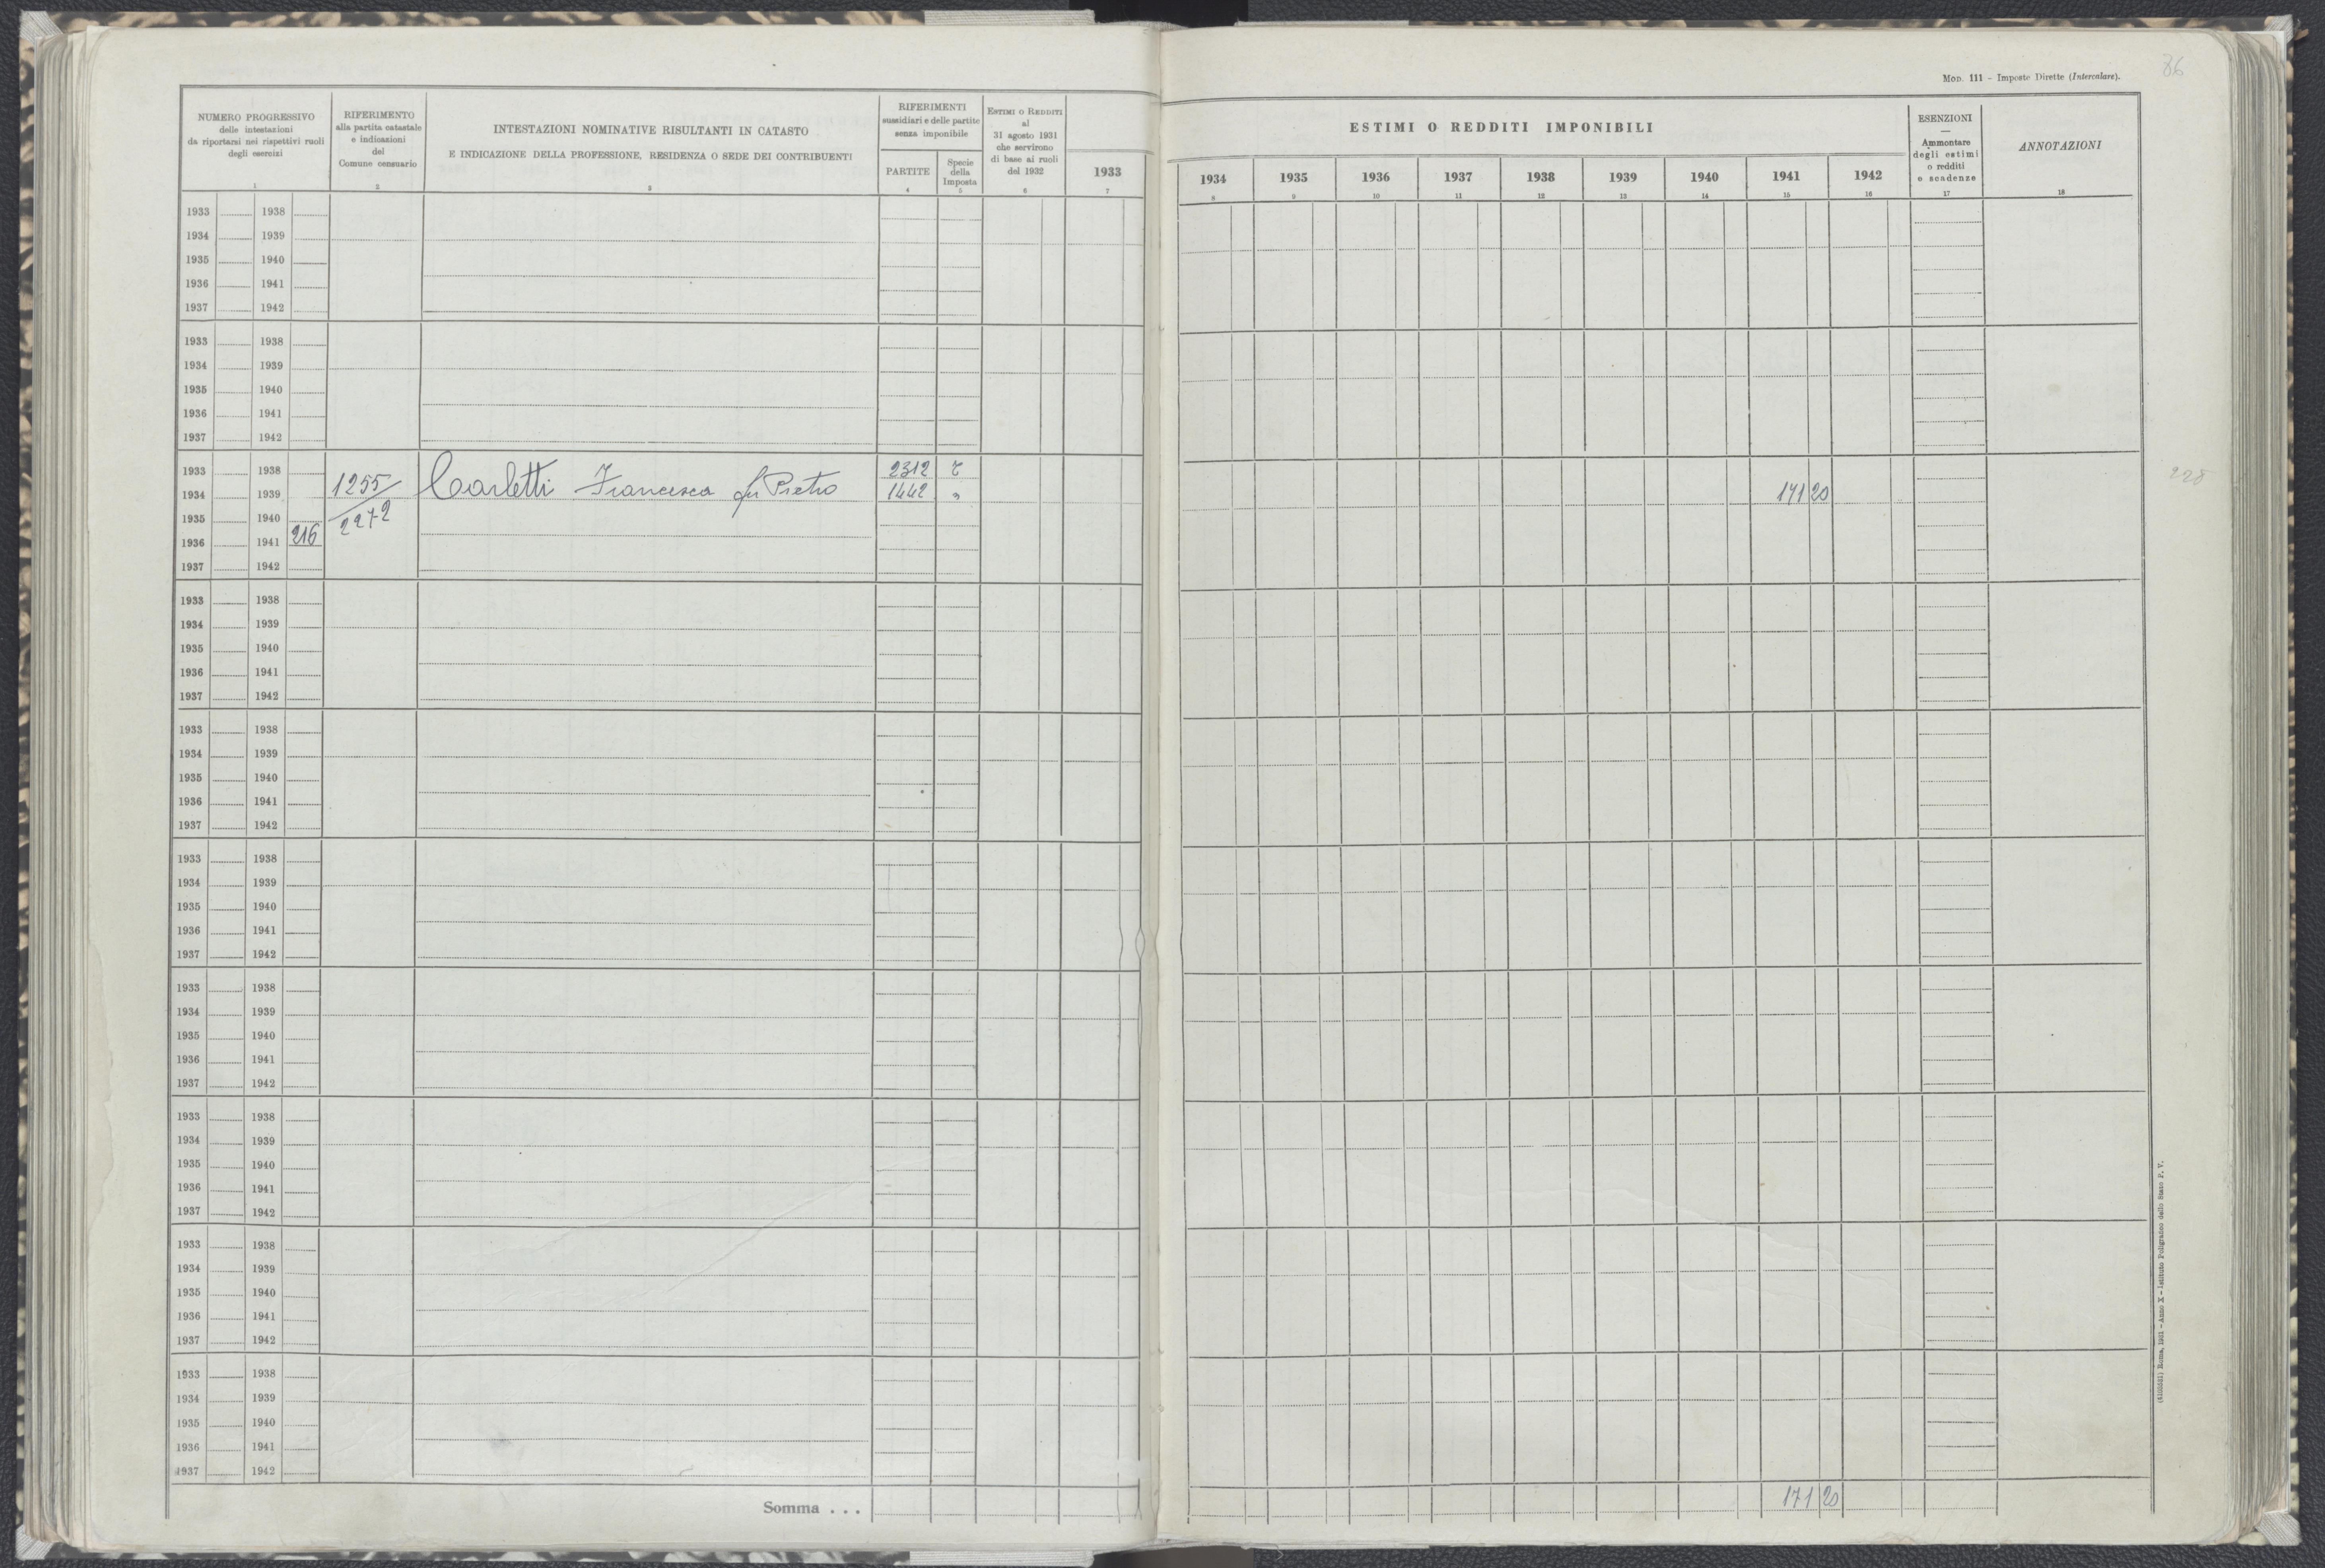 86
Mod. 111 - Imposte Dirette (Intercalare).
NUMERO PROGRESSIVO
delle intestazioni
da riportarsi nei rispettivi ruoli
degli esercizi
1
RIFERIMENTO
alla partita catastale
e indicazioni
del
Comune censuario
2
INTESTAZIONI NOMINATIVE RISULTANTI IN CATASTO
E INDICAZIONE DELLA PROFESSIONE, RESIDENZA O SEDE DEI CONTRIBUENTI
3
RIFERIMENTI
sussidiari e delle partite
senza imponibile
PARTITE
4
Specie
della
Imposta
5
ESTIMI O REDDITI
al
31 agosto 1931
che servirono
di base ai ruoli
del 1932
6
1933
7
ESTIMI O REDDITI IMPONIBILI
1934 1935 1936 1937 1938 1939 1940 1941 1942
8 9 10 11 12 13 14 15 16
ESENZIONI
Ammontare
degli estimi
o redditi
e scadenze
17
ANNOTAZIONI
18
1933 1938
1934 1939
1935 1940
1936 1941
1937 1942
1933 1938
1934 1939
1935 1940
1936 1941
1937 1942
1933 1938 2312
1934 1939 1255 Carletti Francesca fu Pietro 1442 " 171 20
1935 1940 2272
1936 1941 216
1937 1942
228
1933 1938
1934 1939
1935 1940
1936 1941
1937 1942
1933 1938
1934 1939
1935 1940
1936 1941
1937 1942
1933 1938
1934 1939
1935 1940
1936 1941
1937 1942
1933 1938
1934 1939
1935 1940
1936 1941
1937 1942
1933 1938
1934 1939
1935 1940
1936 1941
1937 1942
1933 1938
1934 1939
1935 1940
1936 1941
1937 1942
1933 1938
1934 1939
1935 1940
1936 1941
1937 1942
Somma . . . 171 20
Roma, 1931 - Anno X - Istituto Poligrafico dello Stato P. V.